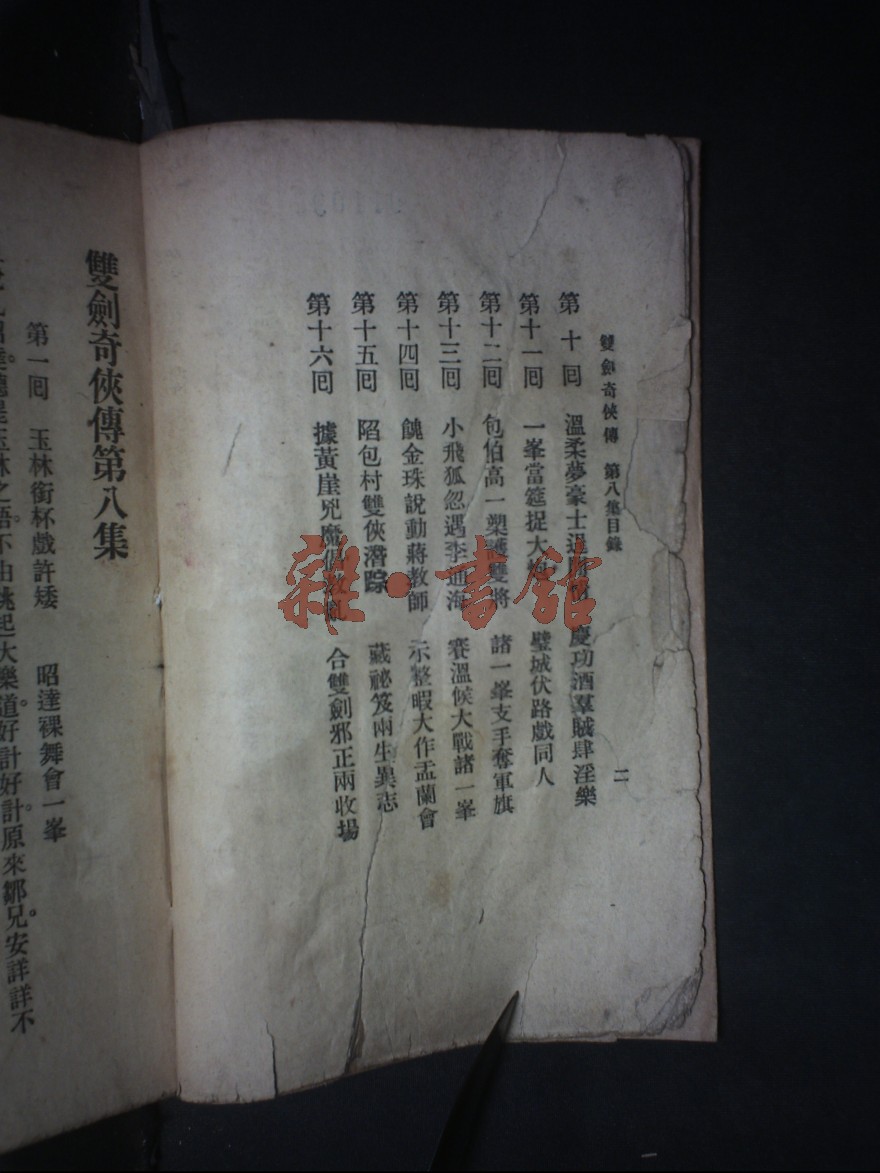 雙劍奇俠傳　第八集目錄
二
第十回　溫柔夢豪士過　慶功酒羣賊肆淫樂
第十一回　一峯當筵捉大　璧城伏路戲同人
第十二回　包伯高一槊護雙將　諸一峯支手奪軍旗
第十三回　小飛狐忽遇李通海　賽溫候大戰諸一峯
第十四回　餽金珠說動蔣教師　示整暇大作盂蘭會
第十五回　陷包村雙俠潛踪　藏祕笈兩生異志
第十六回　據黃崖兇魔倡教亂　合雙劍邪正兩收場
雜·書館
雙劍奇俠傳第八集
第一回　玉林銜杯戲許矮　昭達裸舞會一峯
玉林之語。不由跳起大樂道。好計好計。原來鄒兄安詳詳不